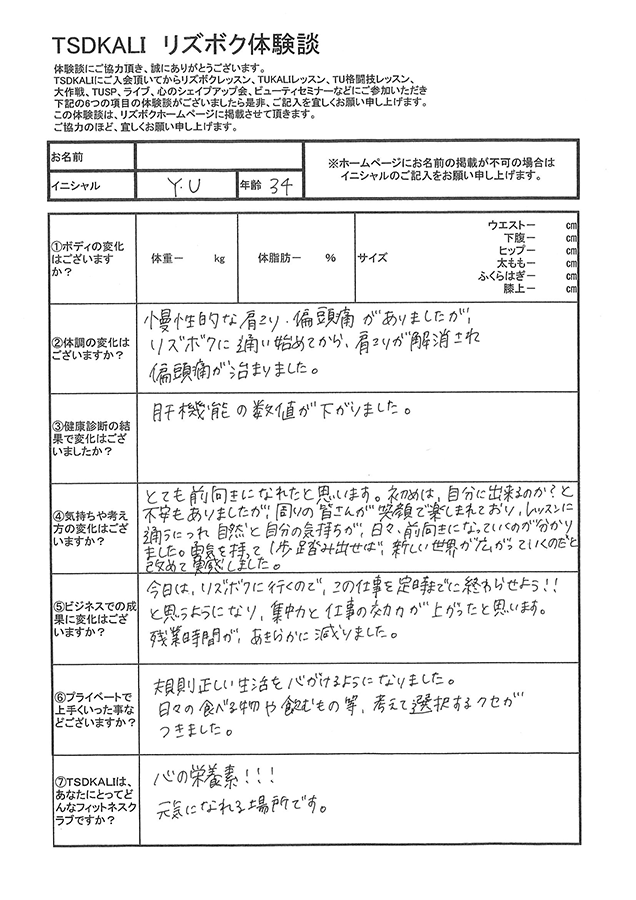 TSDKALI リズボク体験談
体験談にご協力頂き、誠にありがとうございます。
TSDKALIにご入会頂いてからリズボクレッスン、TUKALIレッスン、TU格闘技レッスン、
大作戦、TUSP、ライブ、心のシェイプアップ会、ビューティセミナーなどにご参加いただき
下記の6つの項目の体験談がございましたら是非、ご記入を宜しくお願い申し上げます。
この体験談は、リズボクホームページに掲載させて頂きます。
ご協力のほど、宜しくお願い申し上げます。
お名前
イニシャル Y.U 年齢 34
※ホームページにお名前の掲載が不可の場合は
イニシャルのご記入をお願い申し上げます。
①ボディの変化
はございます
か？
体重ー kg
体脂肪ー %
サイズ
ウエストー cm
下腹ー cm
ヒップー cm
太ももー cm
ふくらはぎー cm
膝上ー cm
②体調の変化は
ございますか？
慢性的な肩こり・偏頭痛がありましたが、
リズボクに通い始めてから、肩こりが解消され
偏頭痛が治まりました。
③健康診断の結
果で変化はござ
いましたか？
肝機能の数値が下がりました。
④気持ちや考え
方の変化はござ
いますか？
とても前向きになれたと思います。初めは、自分に出来るのか？と
不安もありましたが、周りの皆さんが笑顔で楽しまれており、レッスンに
通うにつれ自然と自分の気持ちが、日々、前向きになっていくのが分かり
ました。勇気を持って1歩踏み出せば、新しい世界が広がっていくのだと
改めて実感しました。
⑤ビジネスでの成
果に変化はござ
いますか？
今日は、リズボクに行くので、この仕事を定時までに終わらせよう!!
と思うようになり、集中力と仕事の効力が上がったと思います。
残業時間が、あきらかに減りました。
⑥プライベートで
上手くいった事な
どございますか？
規則正しい生活を心がけるようになりました。
日々の食べる物や飲むもの等、考えて選択するクセが
つきました。
⑦TSDKALIは、
あなたにとってど
んなフィットネスク
ラブですか？
心の栄養素!!!
元気になれる場所です。